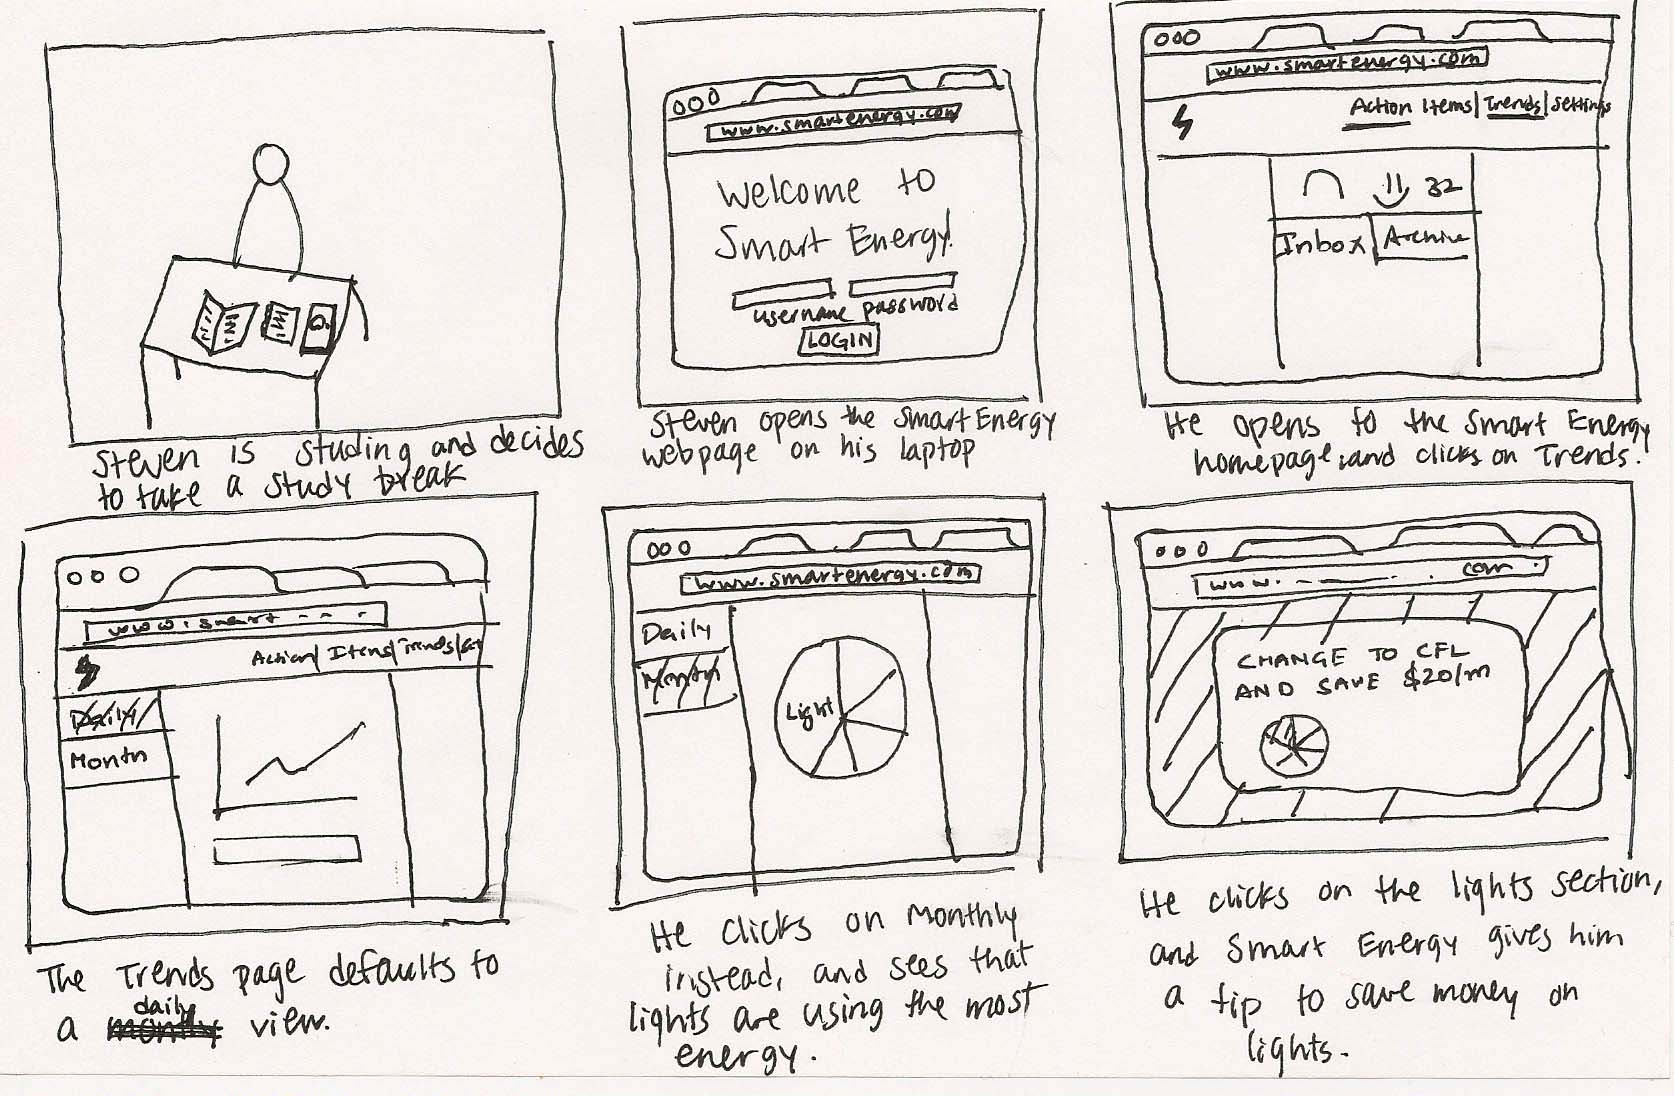 Steven is studing and decides
to take a study break
www.smartenergy.com
Welcome to
Smart Energy!
username password
LOGIN
Steven opens the Smart Energy
webpage on his laptop
www.smartenergy.com
Action Items | Trends | Settings
32
Inbox Archive
He opens to the Smart Energy
homepage, and clicks on Trends.
www.smart - - -
Action | Items | Trends | Set
Daily
Month
The Trends page defaults to
daily
a montly view.
www.smartenergy.com
Daily
Month
Light
He clicks on Monthly
instead, and sees that
lights are using the most
energy.
www. - — . com
CHANGE TO CFL
AND SAVE $20/m
He clicks on the lights section,
and Smart Energy gives him
a tip to save money on
lights.